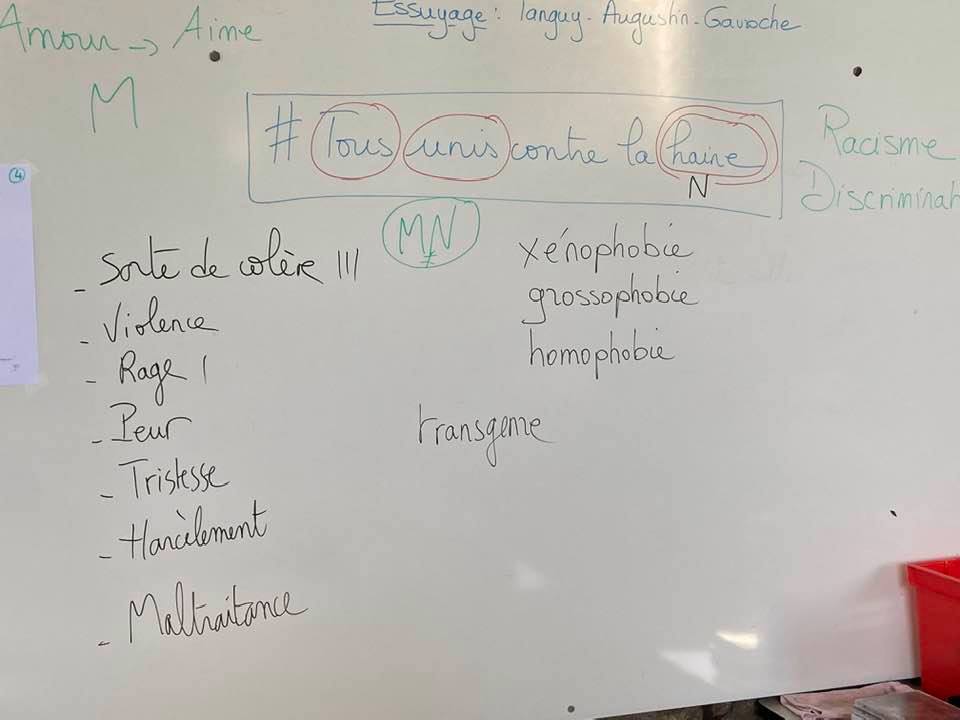 Essuyage : Tanguy - Augustin - Gavroche
Amour → Aime
M
# Tous unis contre la haine
N
Racisme
Discriminat
MN
- Sorte de colère III
- Violence
- Rage I
- Peur
- Tristesse
- Harcèlement
- Maltraitance
xénophobie
grossophobie
homophobie
transgenre
4